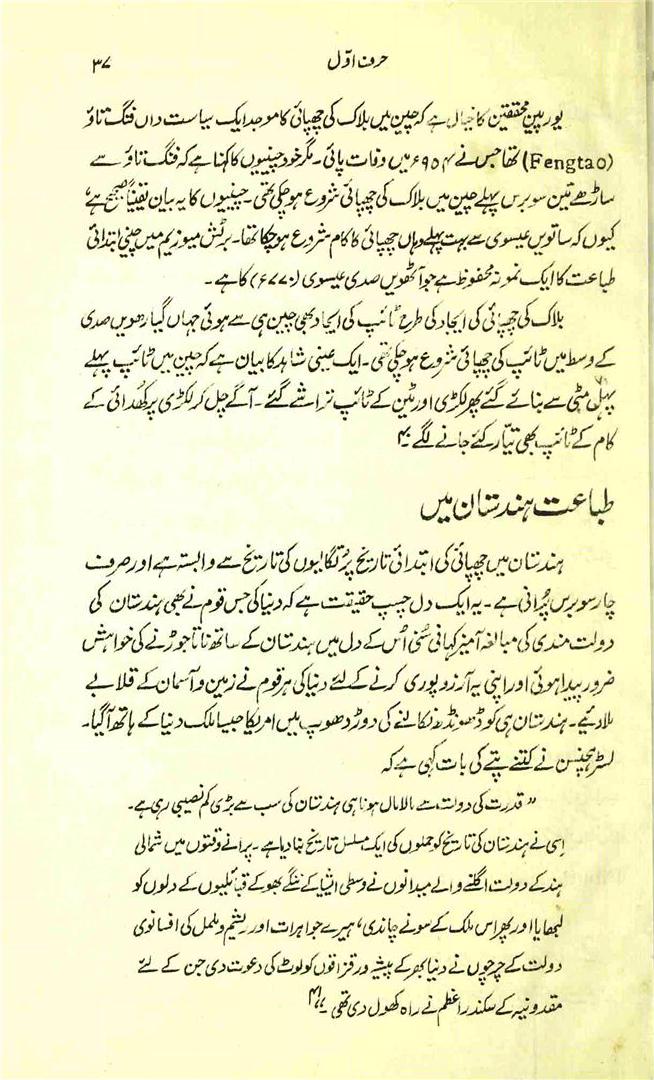 حرف اوّل ۳۷
یورپین محققین کا خیال ہے کہ چین میں بلاک کی چھپائی کا موجد ایک سیاست داں فنگ تاؤ
(Fengtao) تھا جس نے ۹۵۴ء میں وفات پائی۔ مگر خود چینیوں کا کہنا ہے کہ فنگ تاؤ سے
ساڑھے تین سو برس پہلے چین میں بلاک کی چھپائی شروع ہو چکی تھی۔ چینیوں کا یہ بیان یقیناً صحیح ہے،
کیوں کہ ساتویں عیسوی سے بہت پہلے وہاں چھپائی کا کام شروع ہو چکا تھا۔ برٹش میوزیم میں چینی ابتدائی
طباعت کا ایک نمونہ محفوظ ہے جو آٹھویں صدی عیسوی (۷۷۰ء) کا ہے۔
بلاک کی چھپائی کی ایجاد کی طرح ٹائپ کی ایجاد بھی چین ہی سے ہوئی جہاں گیارھویں صدی
کے وسط میں ٹائپ کی چھپائی شروع ہو چکی تھی۔ ایک عینی شاہد کا بیان ہے کہ چین میں ٹائپ پہلے
پہل مٹی سے بنائے گئے پھر لکڑی اور ٹین کے ٹائپ تراشے گئے۔ آگے چل کر لکڑی پر کھدائی کے
کام کے ٹائپ بھی تیّار کئے جانے لگے۔
طباعت ہندستان میں
ہندستان میں چھپائی کی ابتدائی تاریخ پُرتگالیوں کی تاریخ سے وابستہ ہے اور صرف
چار سو برس پُرانی ہے۔ یہ ایک دل چسپ حقیقت ہے کہ دنیا کی جس قوم نے بھی ہندستان کی
دولت مندی کی مبالغہ آمیز کہانی سُنی اُس کے دل میں ہندستان کے ساتھ ناتا جوڑنے کی خواہش
ضرور پیدا ہوئی اور اپنی یہ آرزو پوری کرنے کے لئے دنیا کی ہر قوم نے زمین و آسمان کے قلابے
ملا دیئے۔ ہندستان ہی کو ڈھونڈھ نکالنے کی دوڑ دھوپ میں امریکا جیسا ملک دنیا کے ہاتھ آگیا۔
لسٹر ہچنسن نے کتنے پتے کی بات کہی ہے کہ
"قدرت کی دولت سے مالامال ہونا ہی ہندستان کی سب سے بڑی کم نصیبی رہی ہے۔
اِسی نے ہندستان کی تاریخ کو حملوں کی ایک مسلسل تاریخ بنا دیا ہے۔ پرانے وقتوں میں شمالی
ہند کے دولت اگلنے والے میدانوں نے وسطی ایشیا کے ننگے بھوکے قبائلیوں کے دلوں کو
لبھایا اور پھر اس ملک کے سونے چاندی، ہیرے جواہرات اور ریشم و ململ کی افسانوی
دولت کے چرچوں نے دنیا بھر کے پیشہ ور قزاقوں کو لوٹ کی دعوت دی جن کے لئے
مقدونیہ کے سکندر اعظم نے راہ کھول دی تھی۔"